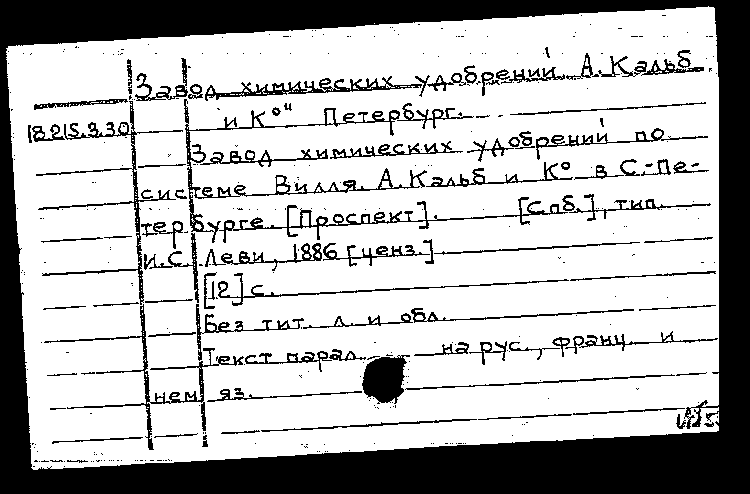 Завод химических удобрений А. Кальб
и К°" Петербург.
18.215.3.30
Завод химических удобрений по
системе Вилля. А. Кальб и К° в С.-Пе-
тербурге. [Проспект]. [С.пб.], тип.
И.С. Леви, 1886 [ценз.].
[12] с.
Без тит. л. и обл.
Текст парал. на рус., франц. и
нем яз.